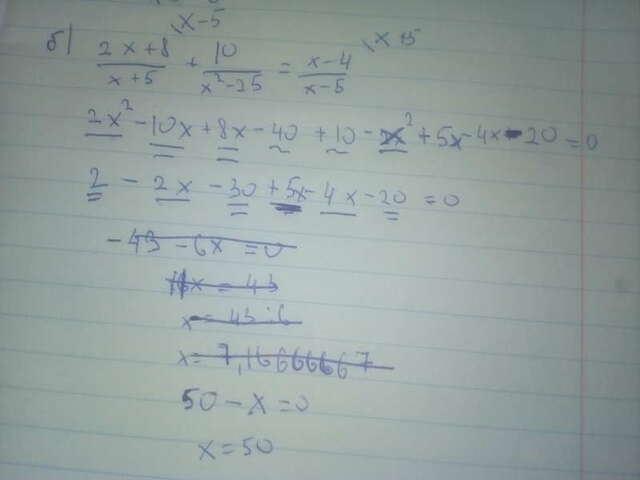 \x-5
б) (2x+8)/(x+5) + 10/(x²-25) = (x-4)/(x-5) \x+5
2x² - 10x + 8x - 40 + 10 - x² + 5x - 4x - 20 = 0
2 - 2x - 30 + 5x - 4x - 20 = 0
-43 - 6x = 0
x = 43
x = 43:6
x = 7,16666667
50 - x = 0
x = 50